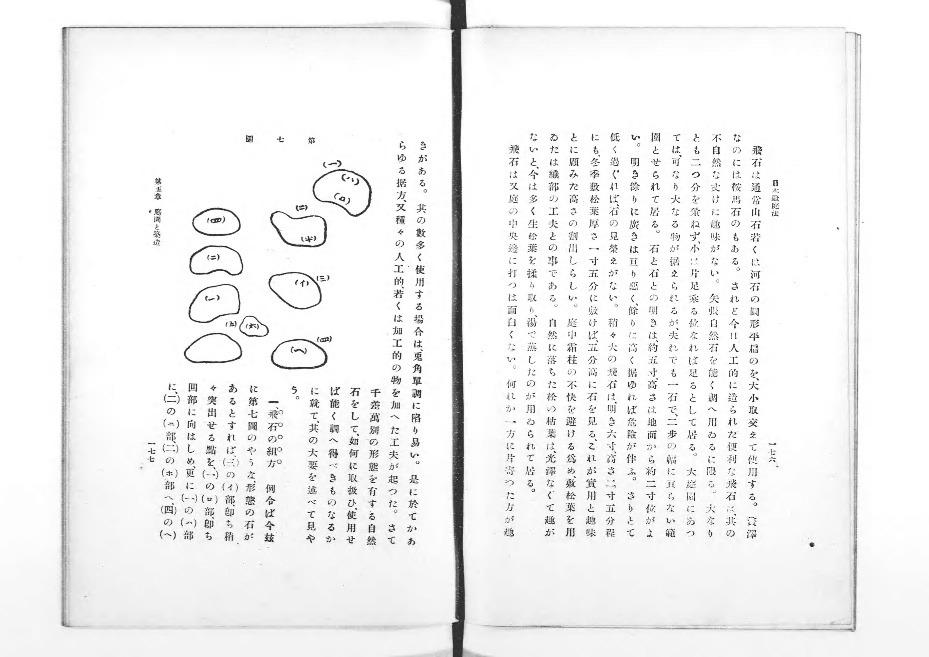 日本設庭法
一七六
飛石は通常山石若くは河石の圓形平扁のを大小取交えて使用する。贅澤
なのには鞍馬石のもある。されど今日人工的に造られた便利な飛石は、其の
不自然な丈けに趣味がない。矢張自然石を能く調へ用ゐるに限る。大なり
とも二つ分を兼ねず、小は片足乘る位なれば足るとして居る。大庭園にあつ
ては、可なり大なる物が据えられるが夫れでも一石で、二歩の幅に亘らない範
圍とせられて居る。石と石との明きは約五寸高さは地面から約二寸位がよ
い。明き餘りに廣きは亘り惡く、餘りに高く据ゆれば危險が伴ふ。さりとて
低く過ぐれば、石の見榮えがない。稍々大の飛石は、明き六寸高さ二寸五分程
にも冬季敷松葉厚さ一寸五分に敷けば、五分高に石を見る、これが實用と趣味
とに顧みた高さの割出しらしい。庭中霜柱の不快を避ける爲め敷松葉を用
ゐたは織部の工夫との事である。自然に落ちた松の枯葉は、光澤なくて趣が
ないと、今は多く生松葉を揉り取り、湯で蒸したのが用ゐられて居る。
飛石は又庭の中央邊に打つは面白くない。何れか一方に片寄つた方が趣
きがある。其の數多く使用する場合は兎角單調に陷り易い。是に於てかあ
らゆる据方、又種々の人工的、若くは加工的の物を加へた工夫が起つた。さて
千差萬別の形態を有する自然
石をして、如何に取扱ひ、使用せ
ば能く調へ得べきものなるか
に就て、其の大要を述べて見や
う。
一、飛石の組方 例令ば今玆
に第七圖のやうな、形態の石が
あるとすれば、(三)の(イ)部卽ち稍
々突出せる點を、(一)の(ロ)部、卽ち
凹部に向はしめ、更に(一)の(ハ)部
に、(二)の(ニ)部、(二)の(ホ)部へ(四)の(ヘ)
第七圖
(一)
(ハ)
(ロ)
(ニ)
(ホ)
(三)
(イ)
(四)
(ヘ)
(四)
(二)
(一)
(五)
(六)
第五章 庭園と築造
一七七